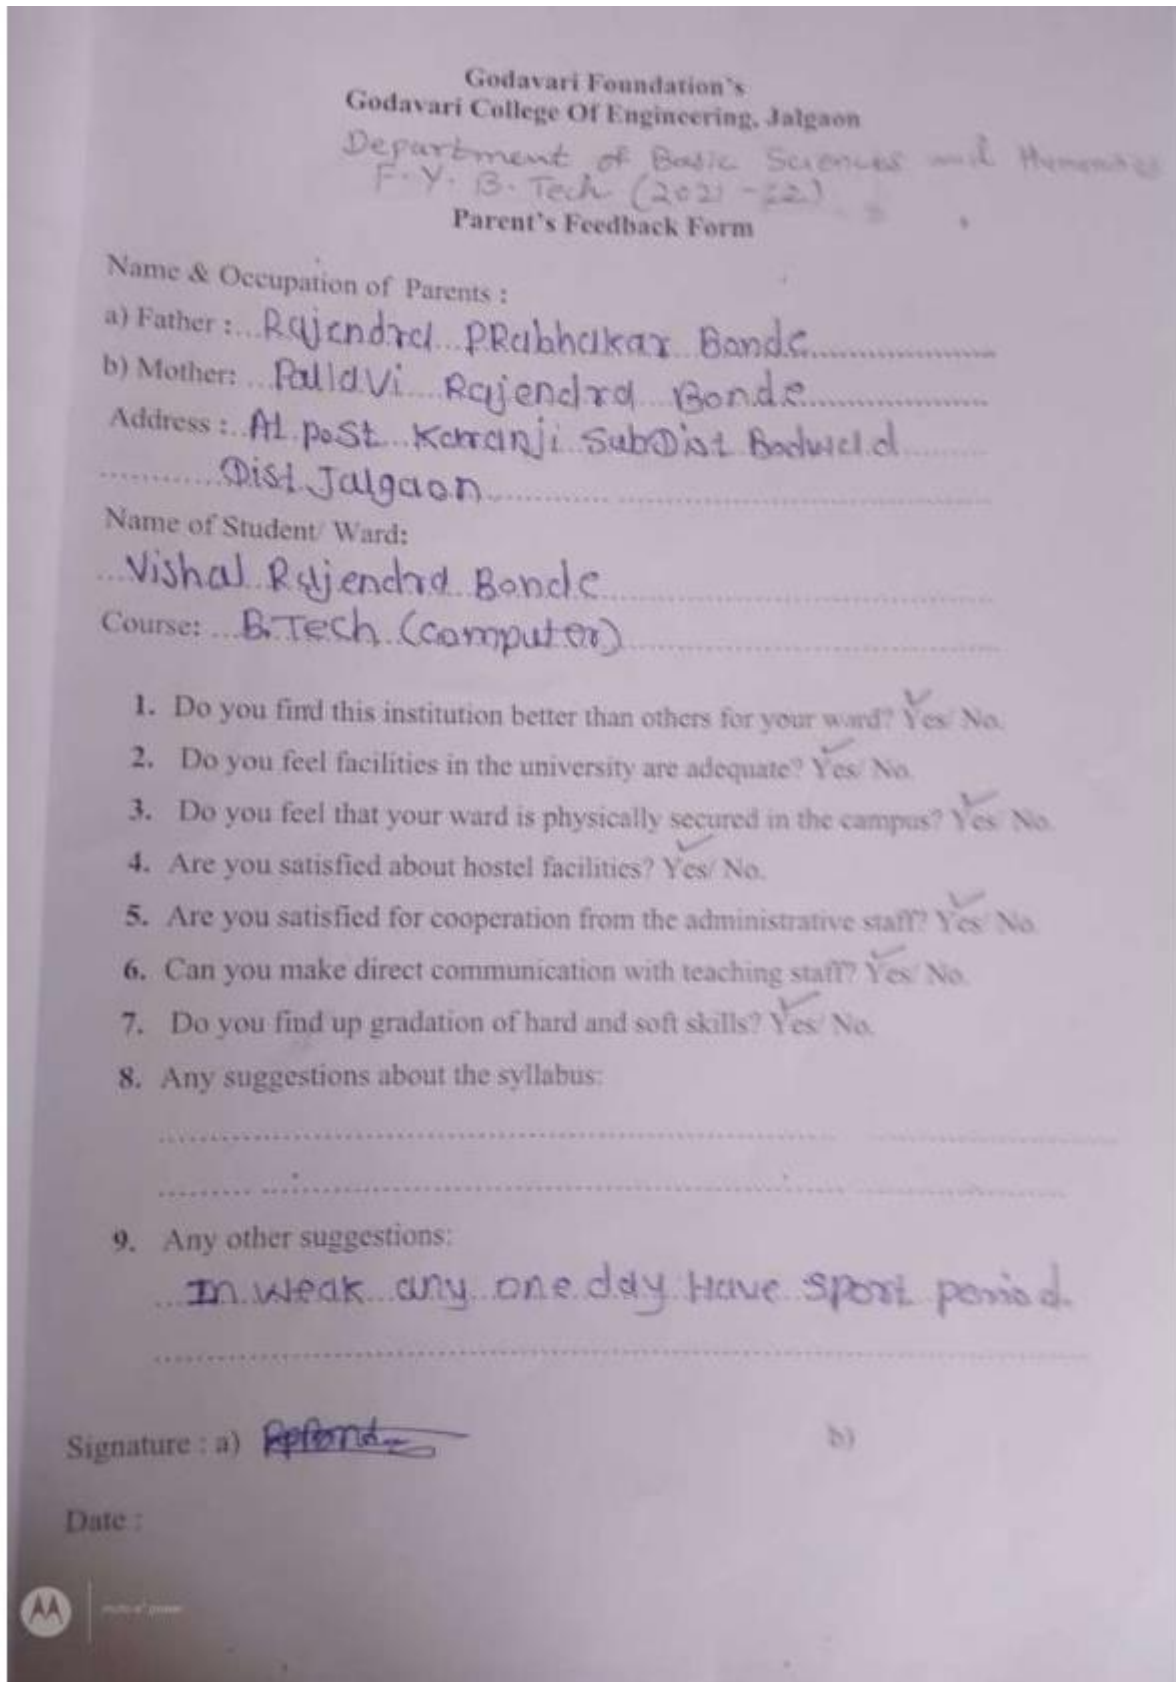 Godavari Foundation's
Godavari College Of Engineering, Jalgaon
Department of Basic Sciences and Humanities
F.Y. B.Tech (2021-22)
Parent's Feedback Form
Name & Occupation of Parents :
a) Father :...Rajendra PRabhakar Bonde
b) Mother: ...Pallavi Rajendra Bonde
Address :..At post Karanji SubDist Bodwad
Dist Jalgaon
Name of Student/ Ward:
Vishal Rajendra Bonde
Course: ...B.Tech (Computer)
1. Do you find this institution better than others for your ward? Yes/ No.
2. Do you feel facilities in the university are adequate? Yes/ No.
3. Do you feel that your ward is physically secured in the campus? Yes/ No.
4. Are you satisfied about hostel facilities? Yes/ No.
5. Are you satisfied for cooperation from the administrative staff? Yes/ No.
6. Can you make direct communication with teaching staff? Yes/ No.
7. Do you find up gradation of hard and soft skills? Yes/ No.
8. Any suggestions about the syllabus:
9. Any other suggestions:
In weak any one day Have sport period.
Signature : a) b)
Date :